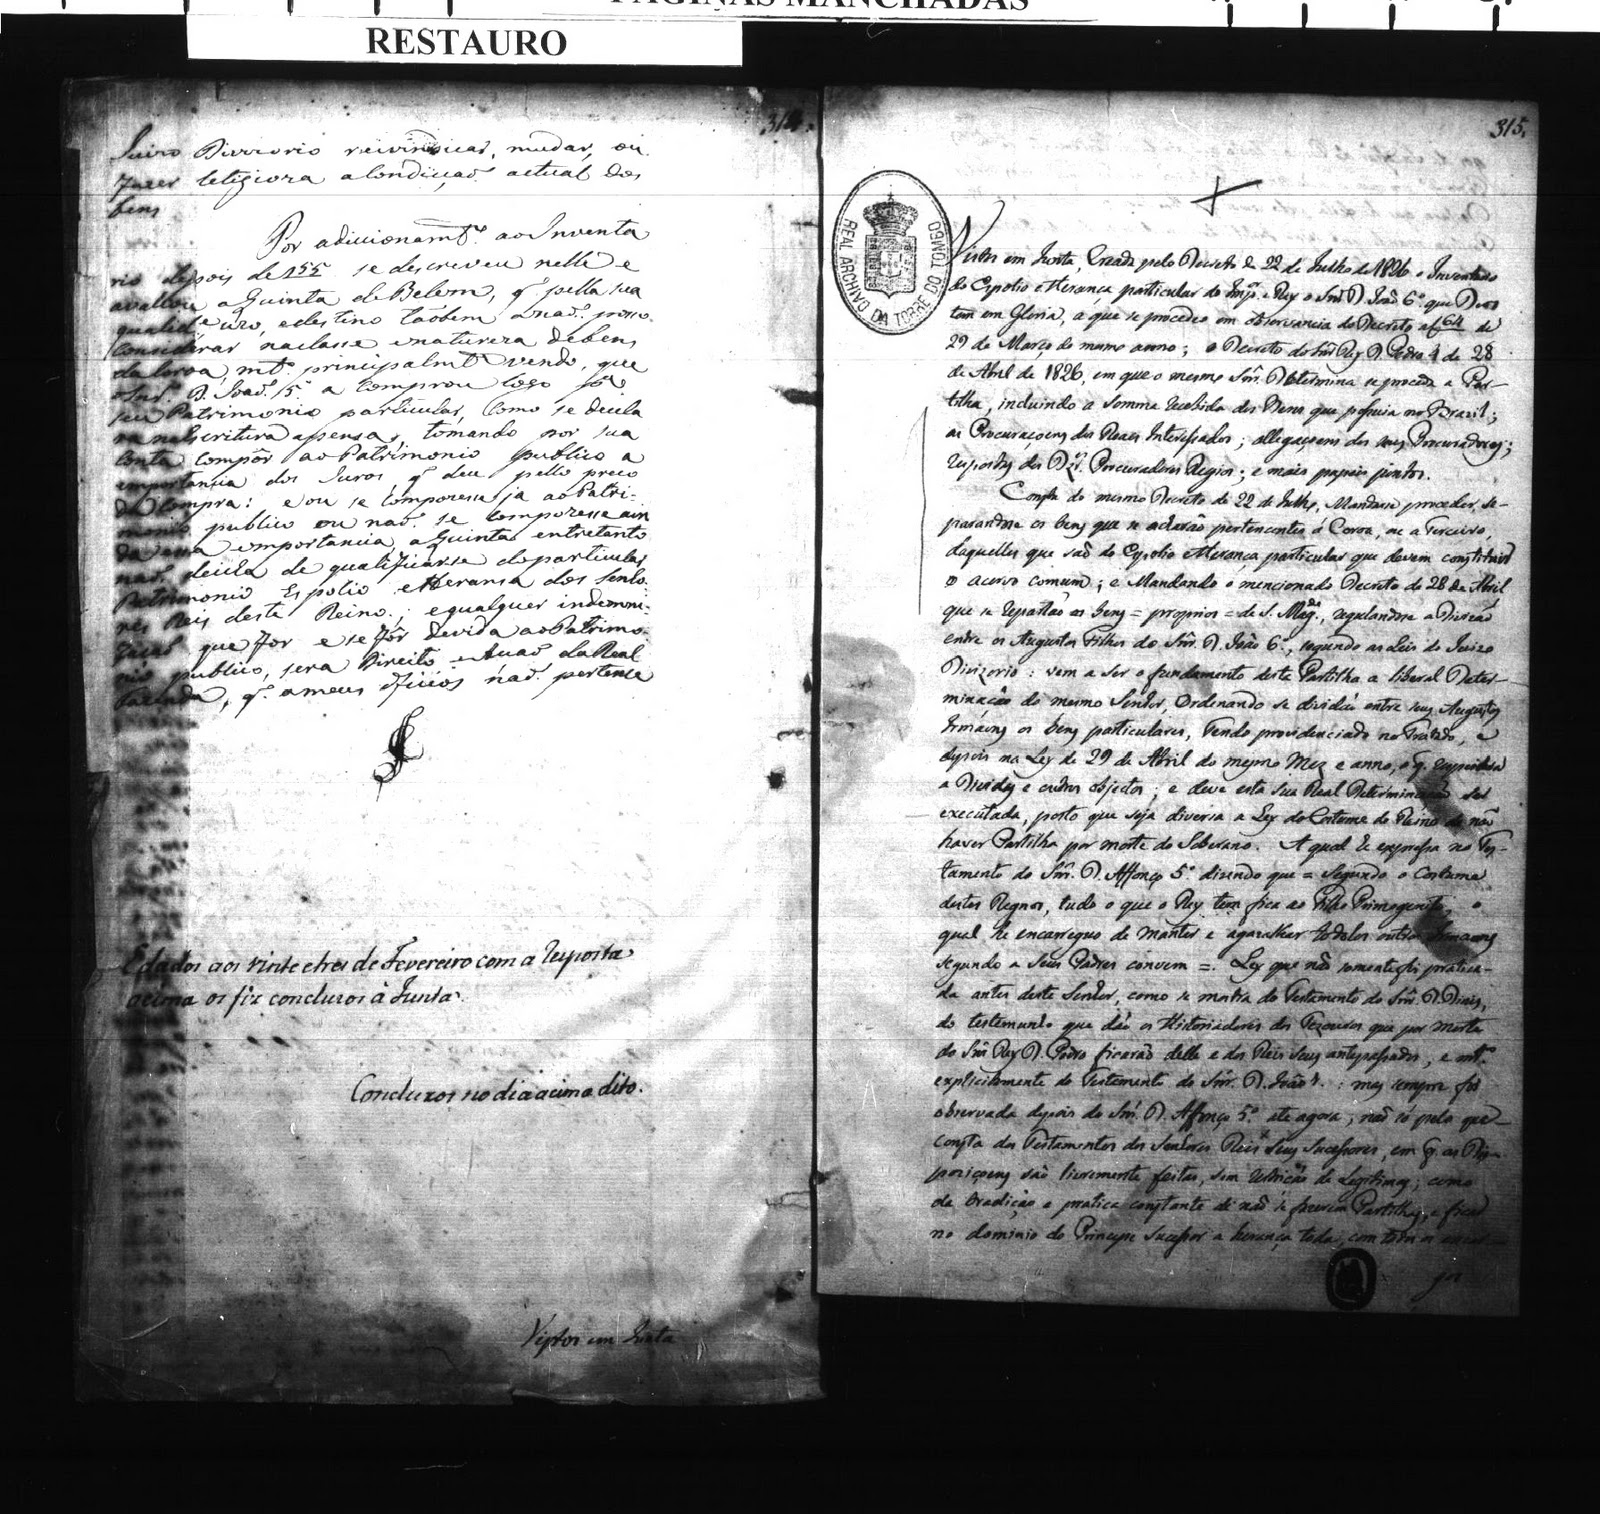 PAGINAS MANCHADAS
RESTAURO
314.
Juizo Divizorio reivindicar, mudar, ou
fazer letigioza a condiçaõ actual dos
bens
Por addicionamtº. ao Inventa
rio depois de 155 se descreveu nelle e
avaliou a Quinta de Belem, q' pella sua
qualide. uzo, e destino taõbem naõ posso
considerar na classe e natureza de bens
da Coroa, mtº. principalmte. vendo, que
o Snr. D. Joaõ 5º a comprou logo pª o
seu Patrimonio particular, como se decla
ra na Escritura apensa, tomando por sua
conta compôr ao Patrimonio publico a
importancia dos Juros, q' deu pello preço
da compra: e ou se compozesse ja ao Patri-
monio publico ou naõ se compozesse ain
da essa importancia a Quinta entretanto
naõ deicha de qualificarse de particular
Patrimonio Espolio e Herança dos Senho
res Reis deste Reino; e qualquer indemni-
zaçaõ que for e se fôr devida ao Patrimo-
nio publico, sera Direito e Auçaõ da Real
Fazenda, q' a meus officios naõ pertence
E dados aos vinte e tres de Fevereiro com a Resposta
acima os fiz concluzos à Junta.
Concluzos no dia acima dito.
Vistos em Junta
315.
REAL ARCHIVO DA TORRE DO TOMBO
Vistos em Junta, Creada pelo Decreto de 22 de Julho de 1826 o Inventario
do Espolio e Herança particular do Impor. e Rey o Snr. D. João 6º. que Deos
tem em Gloria, a que se procedeo em observancia do Decreto a f 64 de
29 de Março do mesmo anno; o Decreto do Snr Rey D. Pedro 4 de 28
de Abril de 1826, em que o mesmo Snr. Determina se proceda a Par-
tilha, incluindo a somma recebida dos Bens que possuia no Brazil;
as Procuraçoens dos Reaes Interessados; allegaçoens dos seus Procuradores;
respostas dos Dzºs. Procuradores Regios; e mais papeis juntos.
Consta do mesmo Decreto de 22 de Julho, Mandarse proceder, se-
parandose os bens que se acharão pertencentes á Coroa, ou a Terceiro,
daquelles que saõ do Espolio e Herança particular que devem constituir
o acervo comum; e Mandando o mencionado Decreto de 28 de Abril
que se repartão os bens = proprios = de S. Magde., regulandose a Divizaõ
entre os Augustos Filhos do Snr. D. João 6º, segundo as Leis do Juizo
Divizorio: vem a ser o fundamento desta Partilha a liberal Deter-
minaçaõ do mesmo Senhor, Ordenando se dividaõ entre seus Augustos
Irmãos os bens particulares, Tendo providenciado no Tratado, e
depois na Ley de 29 de Abril do mesmo Mez e anno, o q. respeitava
a Dividas e outros objectos; e deve esta sua Real Determinaçaõ ser
executada, posto que seja diversa a Ley do Costume do Reino de não
haver Partilha por morte do Soberano. A qual he expressa no Tes-
tamento do Snr. D. Affonço 5º dizendo que = Segundo o Costume
destes Regnos, tudo o que o Rey tem fica ao Filho Primogenito, o
qual he encarreguo de manter e agazalhar todolos outros Irmaons
segundo a seus Padres convem =. Ley que não somente foi pratica-
da antes deste Senhor, como se mostra do Testamento do Snr. D. Diniz,
do testemunho que dão os Historiadores dos Tezouros que por morte
do Snr Rey D. Pedro ficaraõ delle e dos Reis seus antepassados, e mtº
explicitamente do Testamento do Snr. D. João 1º.: mas sempre foi
observada depois do Snr. D. Affonço 5º até agora, não só pelo que
consta dos Testamentos dos Senhores Reis seus Sucessores, em q. as Dis-
poziçoens são livremente feitas, sem restricão de Legitimas; como
da tradiçaõ e pratica constante de não se fazerem Partilhas, e ficar
no dominio do Principe Sucessor a herança toda, com todos os encar-
gos